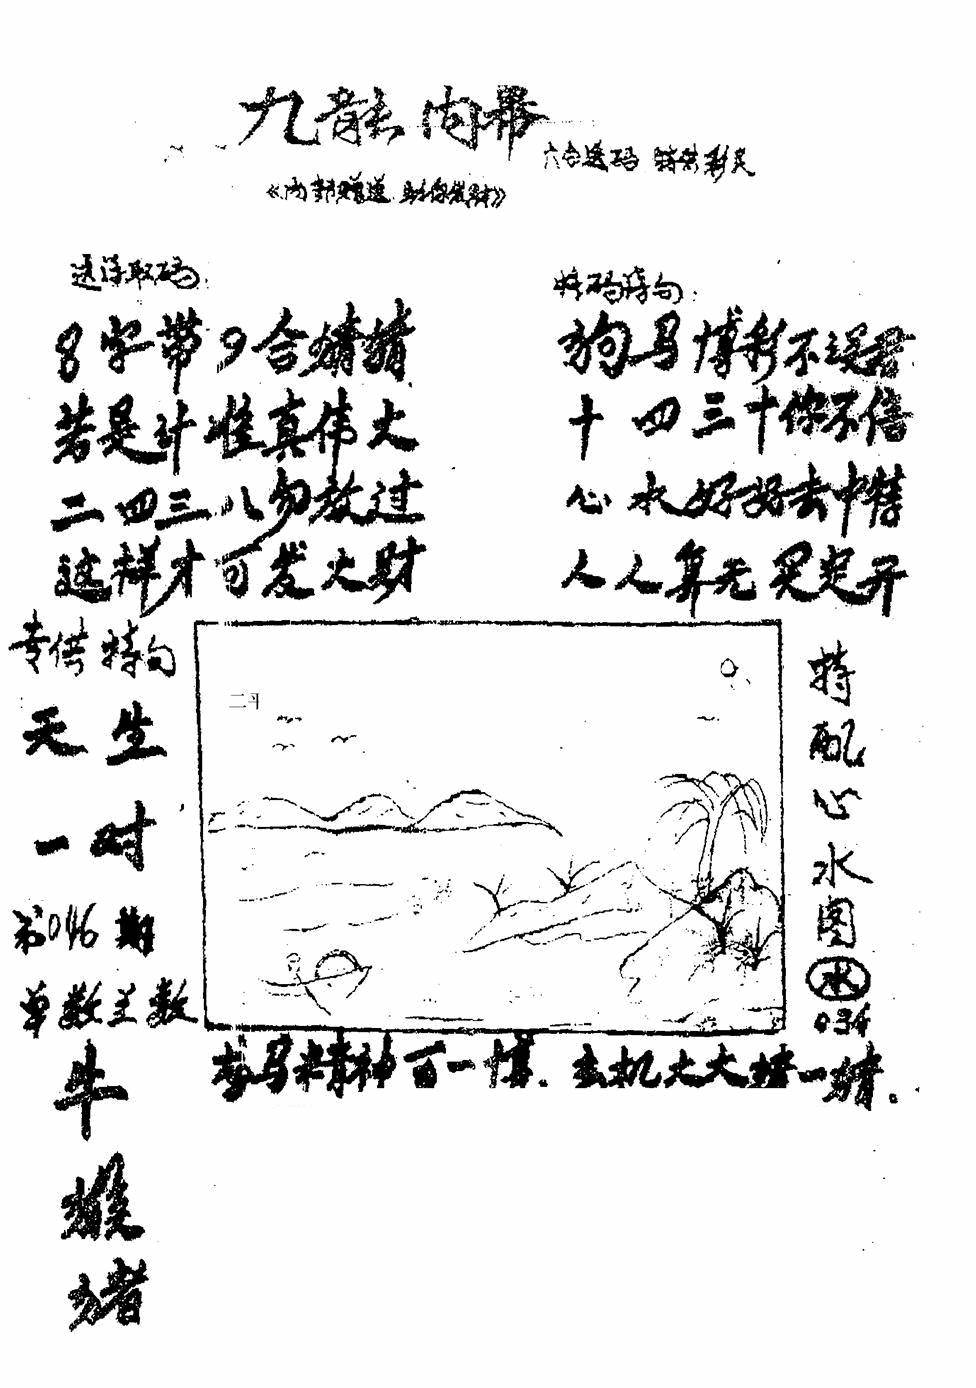 九龍内幕
六合送码 特别彩民
《内部赠送 助你发财》
送浮取码:
特码诗句:
8字带9合猜猜
若是计准真伟大
二四三八勿放过
这样才可发大财
狗马博彩不误君
十四三十你不信
心水好好去中特
人人算无灵定开
专供特句
天生
一对
第046期
单数兰数
牛
猴
猪
二到
特配心水图
水
034
龙马精神百一博.玄机大大猜一猜.